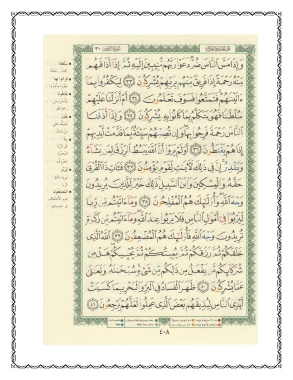 وَإِذَا مَسَّ ٱلنَّاسَ ضُرٌّ دَعَوْا۟ رَبَّهُم مُّنِيبِينَ إِلَيْهِ ثُمَّ إِذَآ أَذَاقَهُم
مِّنْهُ رَحْمَةً إِذَا فَرِيقٌ مِّنْهُم بِرَبِّهِمْ يُشْرِكُونَ ٣٣ لِيَكْفُرُوا۟ بِمَآ
ءَاتَيْنَٰهُمْ فَتَمَتَّعُوا۟ فَسَوْفَ تَعْلَمُونَ ٣٤ أَمْ أَنزَلْنَا عَلَيْهِمْ
سُلْطَٰنًا فَهُوَ يَتَكَلَّمُ بِمَا كَانُوا۟ بِهِۦ يُشْرِكُونَ ٣٥ وَإِذَآ أَذَقْنَا
ٱلنَّاسَ رَحْمَةً فَرِحُوا۟ بِهَا وَإِن تُصِبْهُمْ سَيِّئَةٌۢ بِمَا قَدَّمَتْ أَيْدِيهِمْ
إِذَا هُمْ يَقْنَطُونَ ٣٦ أَوَلَمْ يَرَوْا۟ أَنَّ ٱللَّهَ يَبْسُطُ ٱلرِّزْقَ لِمَن يَشَآءُ
وَيَقْدِرُ إِنَّ فِى ذَٰلِكَ لَءَايَٰتٍ لِّقَوْمٍ يُؤْمِنُونَ ٣٧ فَـَٔاتِ ذَا ٱلْقُرْبَىٰ
حَقَّهُۥ وَٱلْمِسْكِينَ وَٱبْنَ ٱلسَّبِيلِ ذَٰلِكَ خَيْرٌ لِّلَّذِينَ يُرِيدُونَ
وَجْهَ ٱللَّهِ وَأُو۟لَٰٓئِكَ هُمُ ٱلْمُفْلِحُونَ ٣٨ وَمَآ ءَاتَيْتُم مِّن رِّبًا
لِّيَرْبُوَا۟ فِىٓ أَمْوَٰلِ ٱلنَّاسِ فَلَا يَرْبُوا۟ عِندَ ٱللَّهِ وَمَآ ءَاتَيْتُم مِّن زَكَوٰةٍ
تُرِيدُونَ وَجْهَ ٱللَّهِ فَأُو۟لَٰٓئِكَ هُمُ ٱلْمُضْعِفُونَ ٣٩ ٱللَّهُ ٱلَّذِى
خَلَقَكُمْ ثُمَّ رَزَقَكُمْ ثُمَّ يُمِيتُكُمْ ثُمَّ يُحْيِيكُمْ هَلْ مِن
شُرَكَآئِكُم مَّن يَفْعَلُ مِن ذَٰلِكُم مِّن شَىْءٍ سُبْحَٰنَهُۥ وَتَعَٰلَىٰ
عَمَّا يُشْرِكُونَ ٤٠ ظَهَرَ ٱلْفَسَادُ فِى ٱلْبَرِّ وَٱلْبَحْرِ بِمَا كَسَبَتْ
أَيْدِى ٱلنَّاسِ لِيُذِيقَهُم بَعْضَ ٱلَّذِى عَمِلُوا۟ لَعَلَّهُمْ يَرْجِعُونَ ٤١
٤٠٨